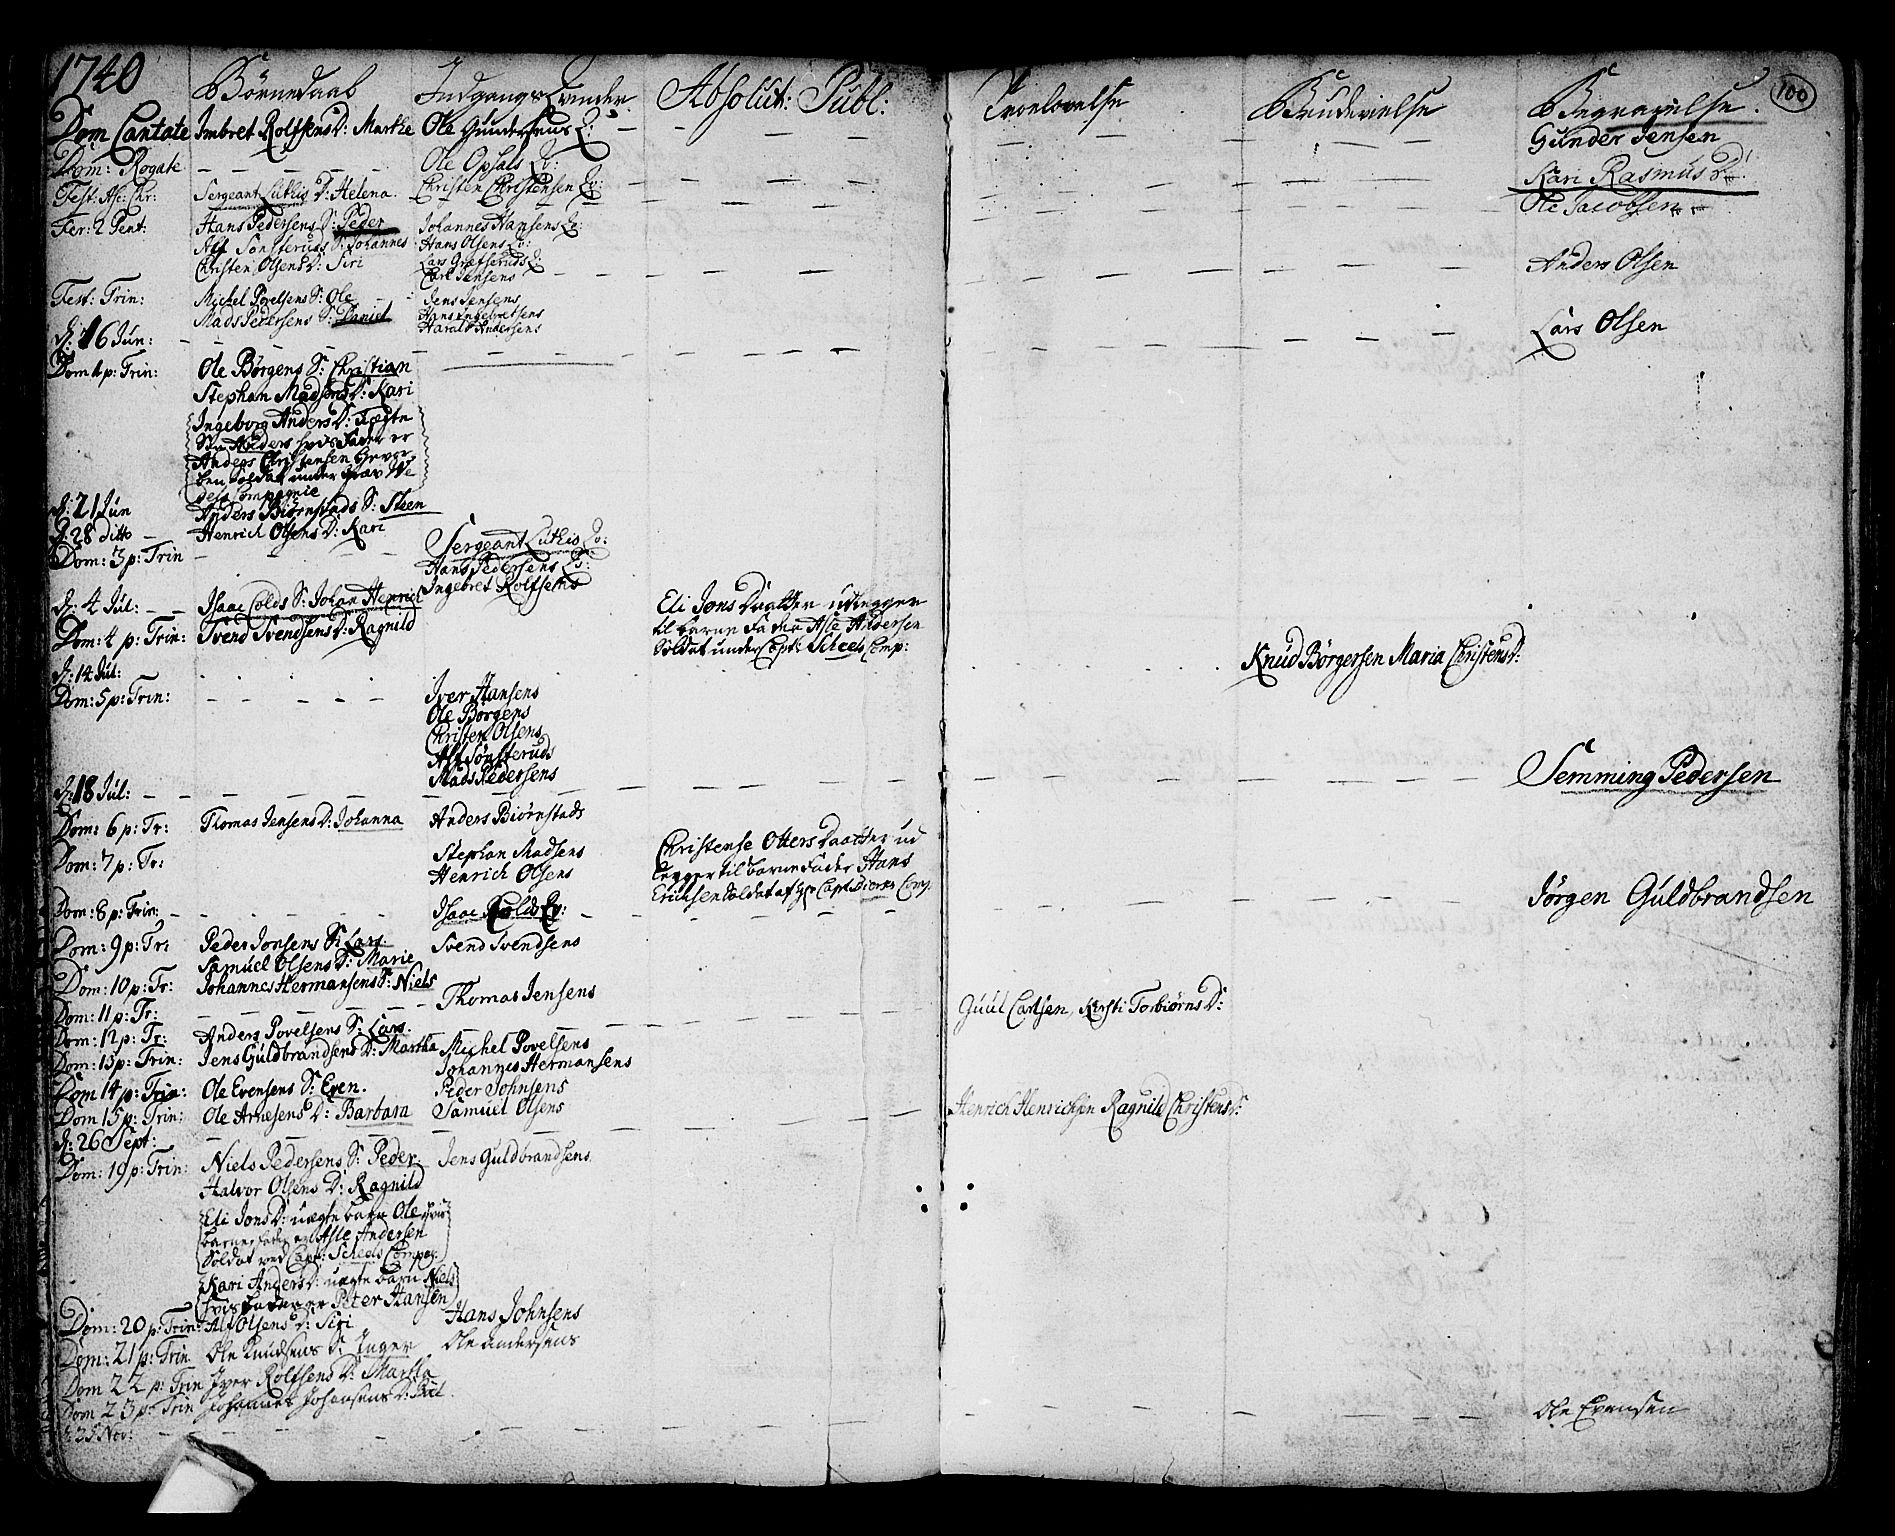 1740
Börnedaab
Indgangs Qvinder
Absolut: Publ:
Troelovelse
Brudevielse
Begravelse
100
Dom Cantate Imbret Rolfsens D: Marthe Ole Gundersens Q: Gunder Jensen
Dom: Rogate Ole Opsals Q: Kari Rasmus D:
Fest: Asc: Chr: Sergeant Luthis D: Helena. Christen Christensen Q: Ole Jacobsen
Fer: 2 Pent: Hans Pedersens S: Peder Johannes Hansens Q:
Alf Sönsteruds S: Johannes Hans Olsens Q:
Christen Olsens D: Siri Lars Græfseruds Q: Anders Olsen
Carl Jensens
Fest: Trin: Michel Povelsens S: Ole Jens Jensens
Mads Pedersens S: Daniel Hans Ingebretsens
Harald Andersens
d: 16 Jun: Lars Olsen
Dom 1 p: Trin: Ole Børgens S: Christian
Stephan Madsens D: Kari
Ingeborg Anders D:
Søn Anders hvis Fader er
Anders Christensen
ben Soldat under We
dels Compagnie
d: 21 Jun Anders Biørnstads S: Steen
d: 28 ditto Henrich Olsens D: Kari
Dom: 3 p: Trin Sergeant Luthis Q:
Hans Pedersens Q:
Ingebret Rolfsens
d: 4 Jul: Isaac Colds S: Johan Henrich
Dom: 4 p: Trin: Svend Svendsens D: Ragnild
Eli Jons Daatter udlegger
til barne Fader Asle Andersen
Soldat under Capt: Scheels Comp:
d: 14 Jul: Knud Börgersen Maria Christens D:
Dom: 5 p: Trin: Iver Hansens
Ole Børgens
Christen Olsens
Alf Sønsteruds
Mads Pedersens
d: 18 Jul: Semming Pedersen
Dom: 6 p: Tr: Thomas Jensens D: Johanna Anders Biørnstads
Dom: 7 p: Tr: Stephan Madsens
Henrich Olsens
Christense Otters Daatter ud
legger til barne Fader Hans
Erichsen Soldat af Capt Comp.
Jörgen Guldbrandsen
Dom: 8 p: Trin: Isaac Colds Q:
Dom: 9 p: Tri Peder Jonsens S: Lars. Svend Svendsens
Samuel Olsens D: Marie
Dom: 10 p: Tr: Johannes Hermansens S: Niels Thomas Jensens
Dom: 11 p: Tr: Guul Carlsen, Kirsti Torbiørns D:
Dom: 12 p: Tr: Anders Povelsens S: Lars.
Dom: 13 p: Trin: Jens Guldbrandsens D: Martha Michel Povelsens
Johannes Hermansens
Dom 14 p: Trin Ole Evensens S: Even. Peder Johnsens
Dom 15 p: Trin: Ole Arnesens D: Barbara Samuel Olsens Henrich Henrichsen Ragnild Christens D:
d: 26 Sept:
Dom: 19 p: Trin: Niels Pedersens S: Peder. Jens Guldbrandsens
Halvor Olsens D: Ragnild
Eli Jons D: uægte barn Ole hvis
barne fader er Asle Andersen
Soldat ved Capt: Scheels Compag:
Kari Anders D: uægte barn Niels
hvis fader er Peter Hansen
Dom: 20 p: Trin: Alf Olsens D: Siri Hans Johnsens
Dom: 21 p: Trin Ole Knudsens D: Inger Ole Andersens
Dom 22 p: Trin Iver Rolfsens D: Martha
Dom 23 p: Trin Johannes Johansens D:
Nov: Ole Evensen